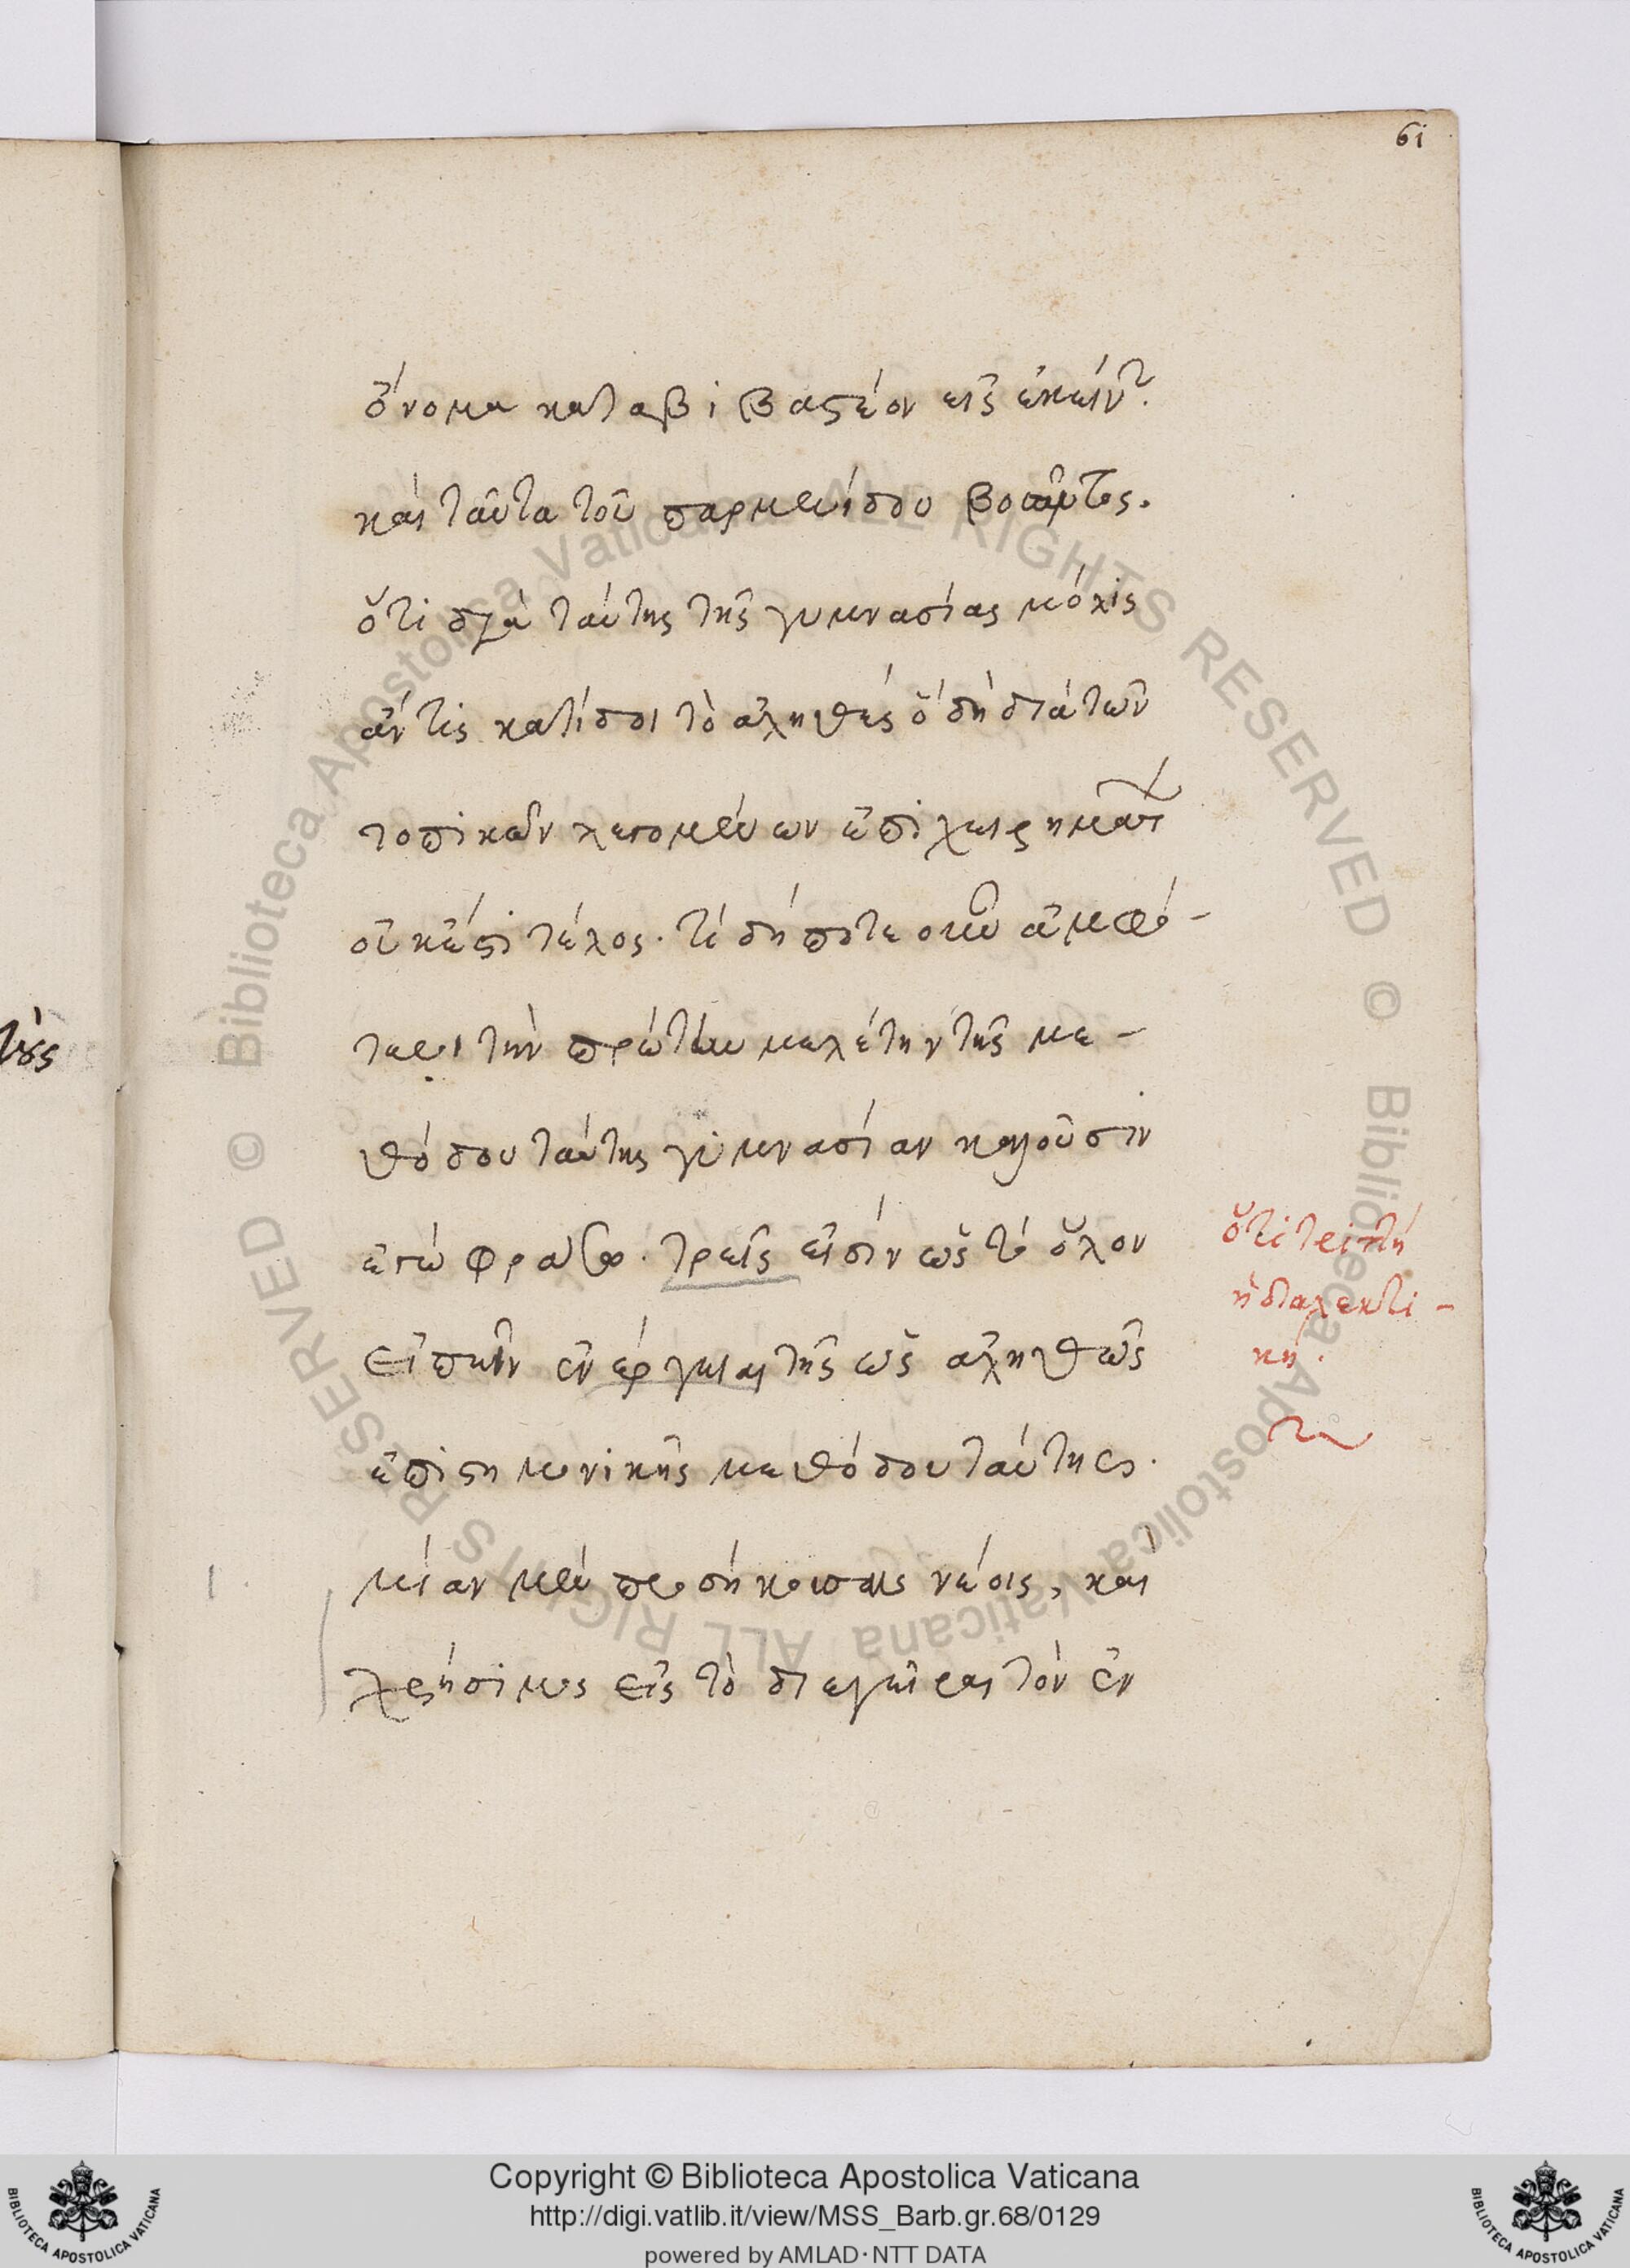 61
ὄνομα καταβιβαστέον εἰς ἐκείνην.
καὶ ταῦτα τοῦ παρμενίδου βοῶντος.
ὅτι διὰ ταύτης τῆς γυμνασίας μόλις
ἄν τις κατίδοι τὸ ἀληθές ὃ δὴ διὰ τῶν
τοπικῶν λεγομένων ἐπιχειρημάτων
οὐκ ἐπὶ τέλος. τί δήποτε οὖν ἀμφό-
τεροι τὴν πρώτην μελέτην τῆς με-
θόδου ταύτης γυμνασίαν καλοῦσιν
ἐγὼ φράσω. τρεῖς εἰσίν ὡς τὸ ὅλον
εἰπεῖν ἐνέργειαι τῆς ὡς ἀληθῶς
ἐπιστημονικῆς μεθόδου ταύτης.
μίαν μὲν προσήκουσαν νέοις, καὶ
χρήσιμος εἰς τὸ διεγεῖραι τὸν ἐν
ὅτι τριπλῆ
ἡ διαλεκτι-
κή.
Copyright © Biblioteca Apostolica Vaticana
http://digi.vatlib.it/view/MSS_Barb.gr.68/0129
powered by AMLAD·NTT DATA
BIBLIOTECA APOSTOLICA VATICANA
BIBLIOTECA APOSTOLICA VATICANA
© Biblioteca Apostolica Vaticana ALL RIGHTS RESERVED © Biblioteca Apostolica Vaticana ALL RIGHTS RESERVED